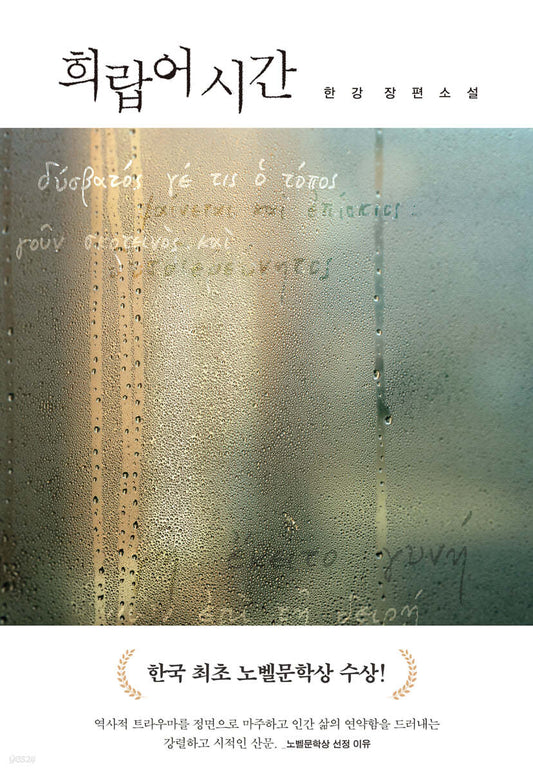 희랍어 시간
한강 장편소설
δύσβατός γέ τις ὁ τόπος
φαίνεται καὶ ἐπίσκιος
γοῦν σκοτεινὸς καὶ
ἔκειτο γυνή
ἐπὶ
한국 최초 노벨문학상 수상!
역사적 트라우마를 정면으로 마주하고 인간 삶의 연약함을 드러내는
강렬하고 시적인 산문. _노벨문학상 선정 이유
yes24